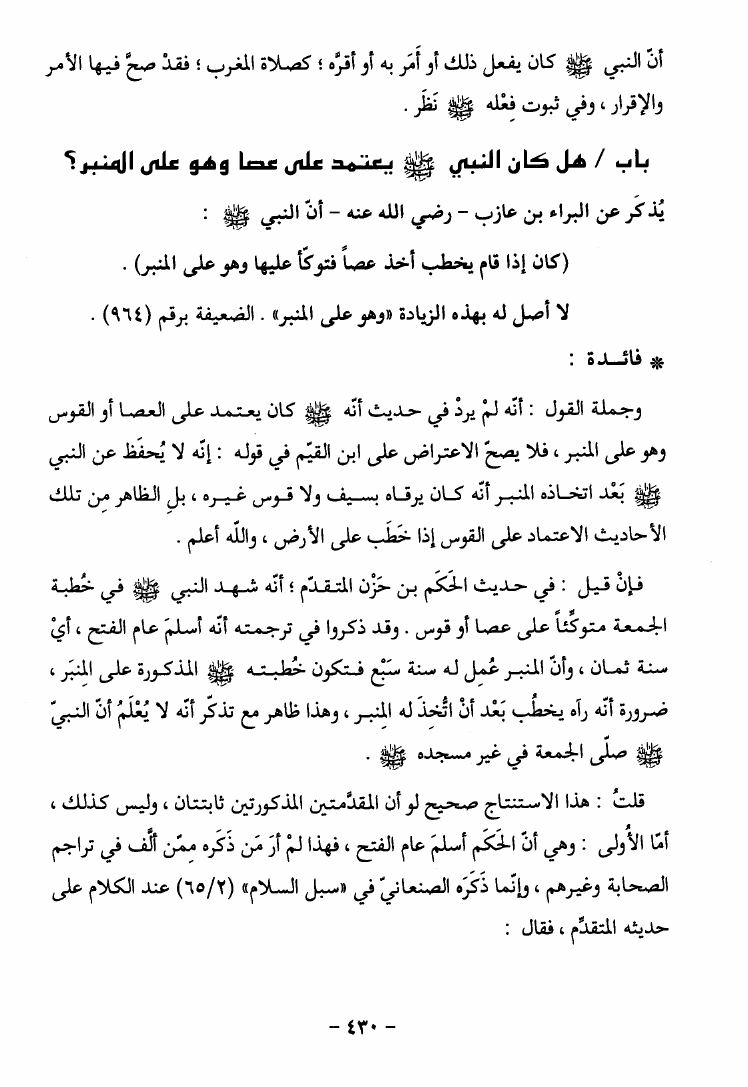 أنّ النبي ﷺ كان يفعل ذلك أو أَمَر به أو أقرَّه ؛ كصلاة المغرب ؛ فقدْ صحَّ فيها الأمر
والإقرار ، وفي ثبوت فِعْله ﷺ نَظَر .
باب / هل كان النبي ﷺ يعتمد على عصا وهو على المنبر؟
يُذكَر عن البراء بن عازب - رضي الله عنه - أنّ النبي ﷺ :
(كان إذا قام يخطب أخذ عصاً فتوكّأ عليها وهو على المنبر) .
لا أصل له بهذه الزيادة «وهو على المنبر» . الضعيفة برقم (٩٦٤) .
* فائـدة :
وجملة القول : أنّه لمْ يردْ في حديث أنّه ﷺ كان يعتمد على العصا أو القوس
وهو على المنبر ، فلا يصحّ الاعتراض على ابن القيّم في قوله : إنّه لا يُحفَظ عن النبي
ﷺ بَعْد اتخاذه المنبر أنّه كان يرقاه بسيف ولا قوس غيره ، بلِ الظاهر مِن تلك
الأحاديث الاعتماد على القوس إذا خَطَب على الأرض ، والله أعلم .
فإنْ قيل : في حديث الحَكَم بن حَزْن المتقدّم ؛ أنّه شهد النبي ﷺ في خُطبة
الجمعة متوكِّئاً على عصا أو قوس . وقد ذكروا في ترجمته أنّه أسلمَ عام الفتح ، أيْ
سنة ثمان ، وأنّ المنبر عُمِل له سنة سَبْع فتكون خُطبته ﷺ المذكورة على المِنبَر ،
ضرورة أنّه رآه يخطُب بَعْد أنْ اتُّخِذَ له المِنبر ، وهذا ظاهر مع تذكّر أنّه لا يُعْلَمُ أنّ النبيّ
ﷺ صلّى الجمعة في غير مسجده ﷺ .
قلتُ : هذا الاستنتاج صحيح لو أن المقدّمتين المذكورتين ثابتتان ، وليس كذلك ،
أمّا الأُولى : وهي أنّ الحَكَم أسلمَ عام الفتح ، فهذا لمْ أرَ مَن ذَكَره ممّن ألَّف في تراجم
الصحابة وغيرهم ، وإنّما ذَكَرَه الصنعانيّ في «سبل السلام» (٦٥/٢) عند الكلام على
حديثه المتقدَّم ، فقال :
- ٤٣٠ -